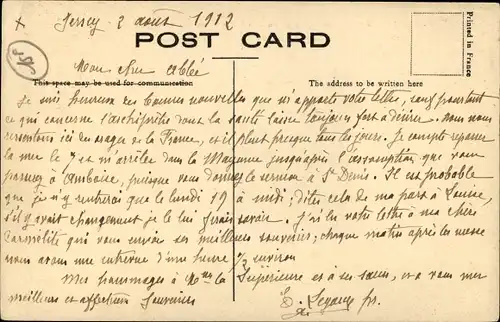 Jersey 2 août 1912
POST CARD
Printed in France
Mon cher abbé
This space may be used for communication
The address to be written here
Je suis heureux des bonnes nouvelles que m'apporte votre lettre, sauf pourtant
ce qui concerne l'archiprêtre dont la santé laisse toujours fort à désirer. Nous nous
ressentons ici des orages de la France, et il pleut presque tous les jours. Je compte repasser
la mer le 7 et m'arrêter dans la Mayenne jusqu'après l'assomption que vous
à Amboise, puisque vous donnez le sermon à St Denis. Il est probable
que je n'y rentrerai que le lundi 19 à midi; dites cela de ma part à Louise,
s'il y avait changement je le lui ferais savoir. J'ai lu votre lettre à ma chère
carmélite qui vous envoie ses meilleurs souvenirs; chaque matin après la messe
nous avons une entrevue d'une heure 1/2 environ
Mes hommages à Mme la Supérieure et à ses sœurs, et à vous mes
meilleurs et affectueux souvenirs